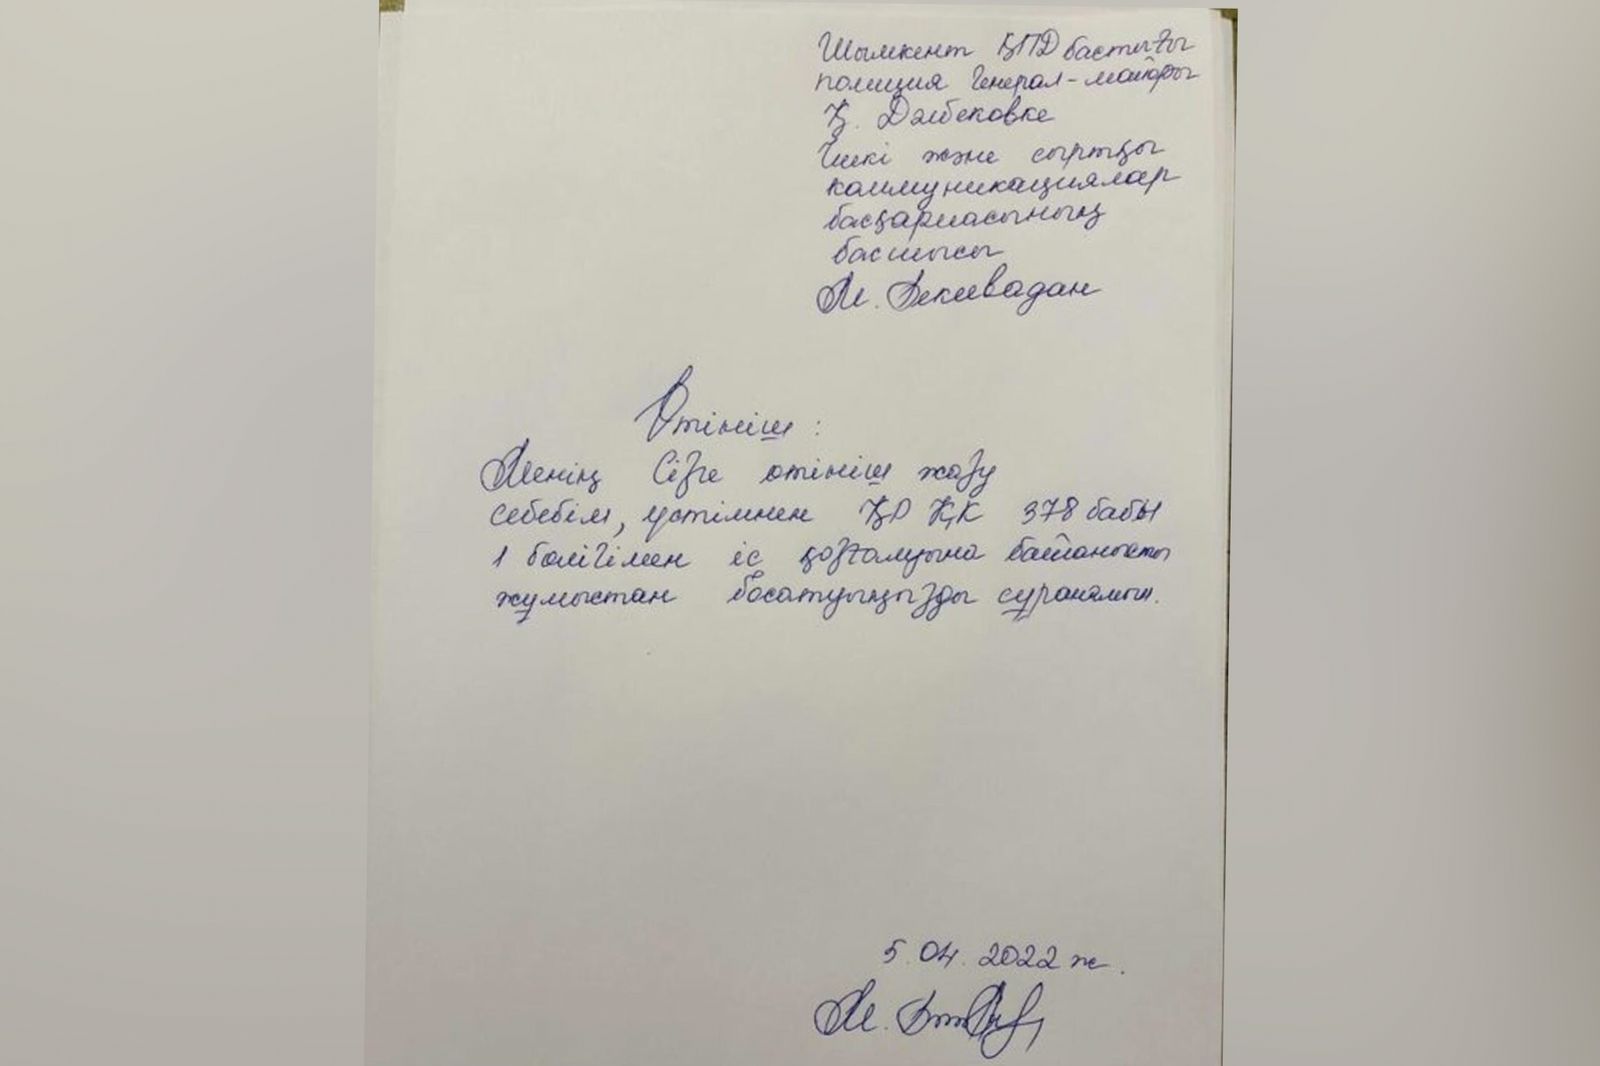 Шымкент ҚПД бастығы
полиция генерал-майоры
Қ. Дәлбековке
Ішкі және сыртқы
коммуникациялар
басқармасының
басшысы
М.
Өтініш:
Менің Сізге өтініш жазу
себебім, үстімнен ҚР ҚК 378 бабы
1 бөлігімен іс қозғалуына байланысты
жұмыстан босатуыңызды сұранамын.
5.04.2022 ж.
М.